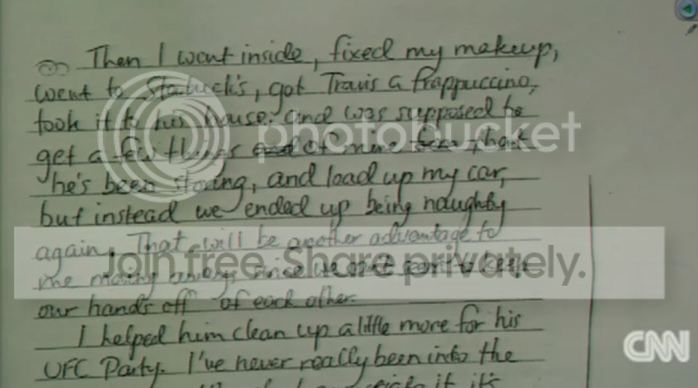 Then I went inside, fixed my makeup,
went to Starbuck's, got Travis a frappuccino,
took it to his house. and was supposed to
get a few things of mine that
he's been storing, and load up my car,
but instead we ended up being naughty
again. That will be another advantage to
me moving away, since we can't seem to keep
our hands off of each other.
I helped him clean up a little more for his
UFC Party. I've never really been into the
it it's
photobucket
Join free. Share privately.
CNN